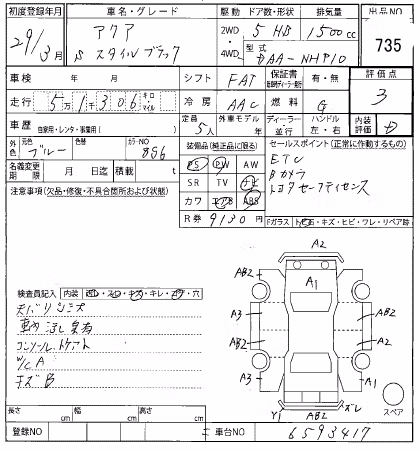 初度登録年月 車名・グレード 駆動 ドア数・形状 排気量 出品NO
29年 3月 アクア 2WD 5 HB 1500cc 735
S スタイルブラック 4WD 型式 DAA-NHP10
車検 年 月 シフト FAT 保証書 有・無 評価点
走行 5万1千306 キロ マイル 冷房 AAC 燃料 G 3
車歴 自家用・レンタ・事業用( ) 定員 5人 外車モデル 年 ディーラー 並行 ハンドル 左・右 内装評価 D
外色 元色 ブルー 色替 カラーNO 8S6 装備品(純正品に限る) セールスポイント(正常に作動するもの)
名義変更期限 月 日 積載 t PS PW AW ETC
注意事項(欠品・修復・不具合箇所および状態) SR TV ナビ Bカメラ
カワ エアB ABS トヨタセーフティセンス
R券 9130円 Fガラス
トビ石・キズ・ヒビ・ワレ・リペア跡
A2
AB2 A1 AB2
検査員記入 内装 キレ・穴
天バリシミズ
車内 臭有
A3 AB2
コンソール
AB2 A2
W/C A
キズB
A3 A1
スペア
Y1 AB2 ズレ
長さ cm 幅 cm 高さ cm
登録NO 車台NO 6593417